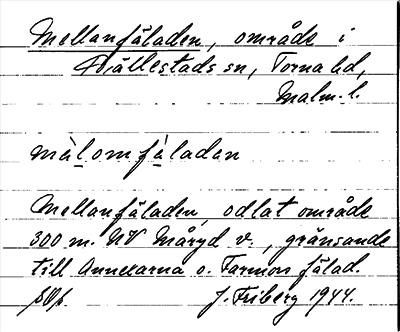 Mellanfäladen, område i
Hällestads sn, Torna hd,
Malm. l.
mèlomfàladan
Mellanfäladen, odlat område
300 m. NV Måryd v., gränsande
till Annexarna o. Farmors fälad.
J. Friberg 1944.